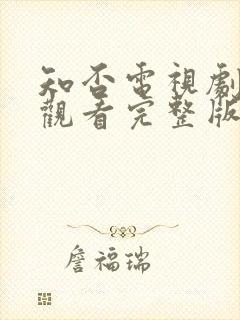 知否電視劇
觀看完整版
詹福瑞